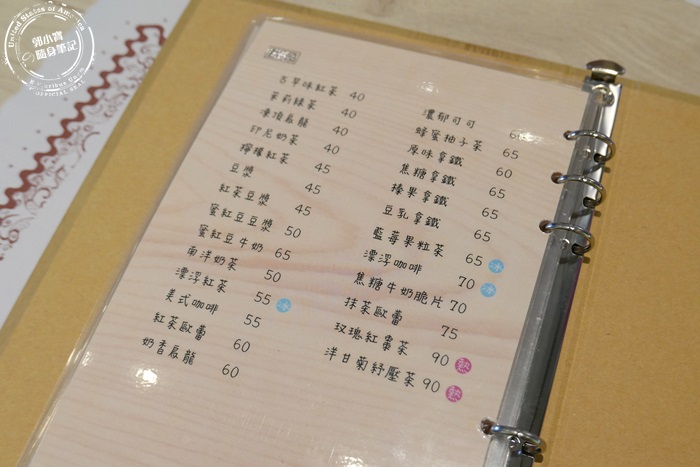 United States of America
郭小寶
隨身筆記
OFFICIAL SEAL
古早味紅茶 40
茉莉綠茶 40
凍頂烏龍 40
印尼奶茶 40
檸檬紅茶 45
豆漿 45
紅茶豆漿 45
蜜紅豆豆漿 50
蜜紅豆牛奶 65
南洋奶茶 50
漂浮紅茶 55 冰
美式咖啡 55
紅茶歐蕾 60
奶香烏龍 60
濃郁可可
蜂蜜柚子茶 65
原味拿鐵 60
焦糖拿鐵 65
榛果拿鐵 65
豆乳拿鐵 65
藍莓果粒茶 65 冰
漂浮咖啡 70 冰
焦糖牛奶脆片 70
抹茶歐蕾 75
玫瑰紅棗茶 90 熱
洋甘菊紓壓茶 90 熱